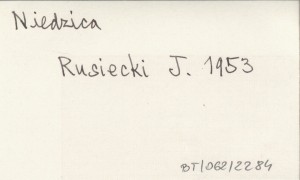 Niedzica
Rusiecki J. 1953
BT/062/2284